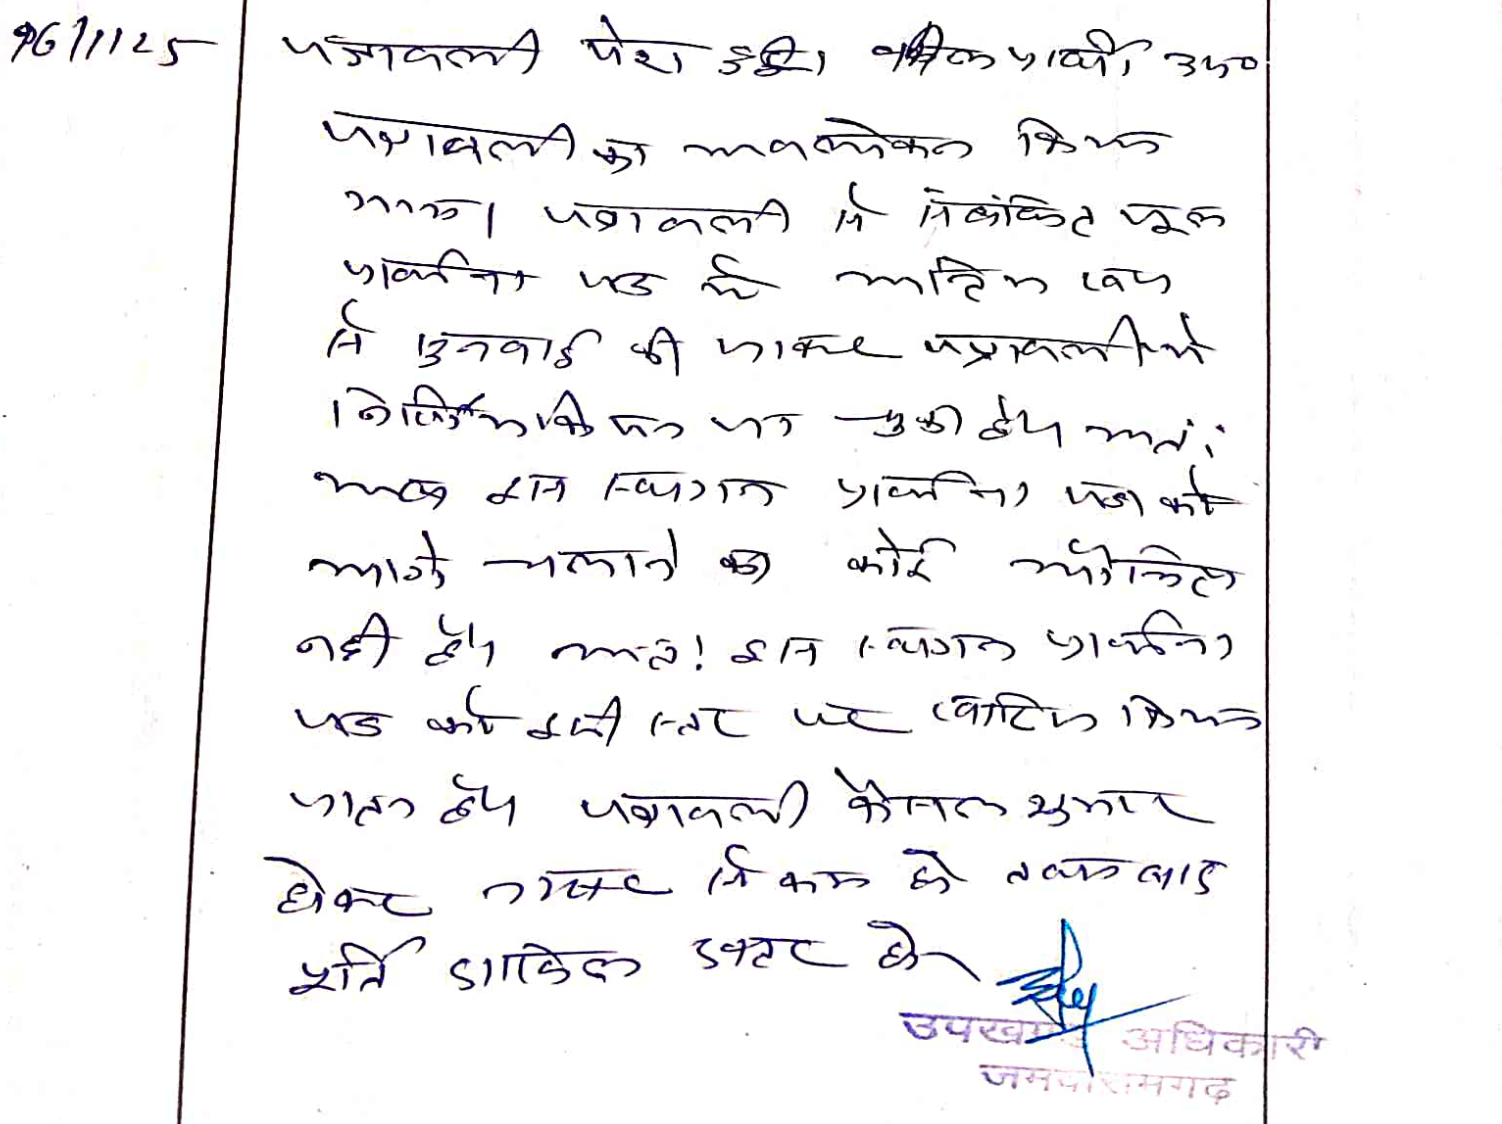 16/1/25 पत्रावली पेश हुई। वकील प्रार्थी उप०
पत्रावली का अवलोकन किया
गया। पत्रावली में मूल
प्रार्थना पत्र में अन्तिम रूप
से सुनवाई की जाकर पत्रावली में
निर्णय किया जा चुका है। अतः
अब इस स्थगन प्रार्थना पत्र को
आगे चलाने का कोई औचित्य
नहीं है। अतः इस स्थगन प्रार्थना
पत्र को इसी स्तर पर खारिज किया
जाता है। पत्रावली फैसल शुमार
होकर नम्बर से कम हो तथा बाद
पूर्ति दाखिल दफ्तर हो
उपखण्ड अधिकारी
जमवारामगढ़